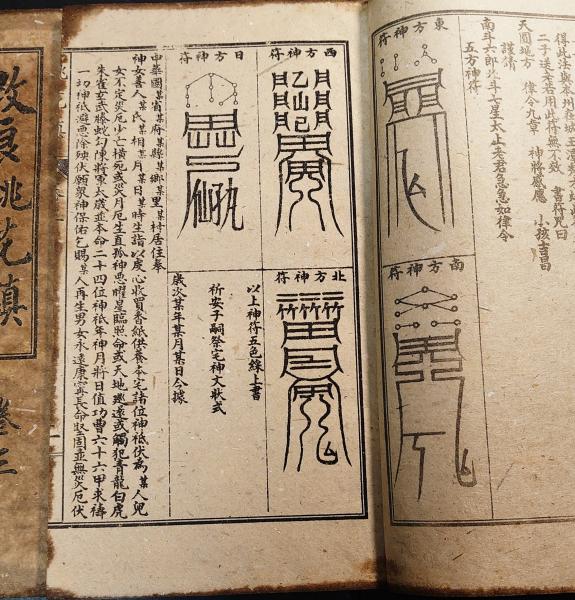 得此法與本州在城王
二子送女若用此符無不效 書符咒曰
天圓地方 律令九章 神將感應 小孩吉昌
謹請
南斗六郎北斗七星太上老君急急如律令
五方神符
東方神符
南方神符
西方神符
北方神符
日方神符
以上神符五色線上書
祈安子嗣祭宅神文狀式
歲次某年某月某日今據
中華國某省某府某縣某鄉某里某村居住奉
神女善人某氏某相某月某日某時生詣以虔心收買香紙供養本宅諸位神祇伏為某人兒
女不定災厄少亡橫死或災月厄生直孤神惡曜星臨照命或天地邀遮或觸犯青龍白虎
朱雀玄武螣蛇勾陳將軍太歲並本命二十四位神祇年神月將日值功曹六十六甲求禱
一切神祇避惡除殃伏願眾神保佑乞賜某人再生男女永遠康寧長命堅固並無災厄伏
改良桃花鎮 卷三